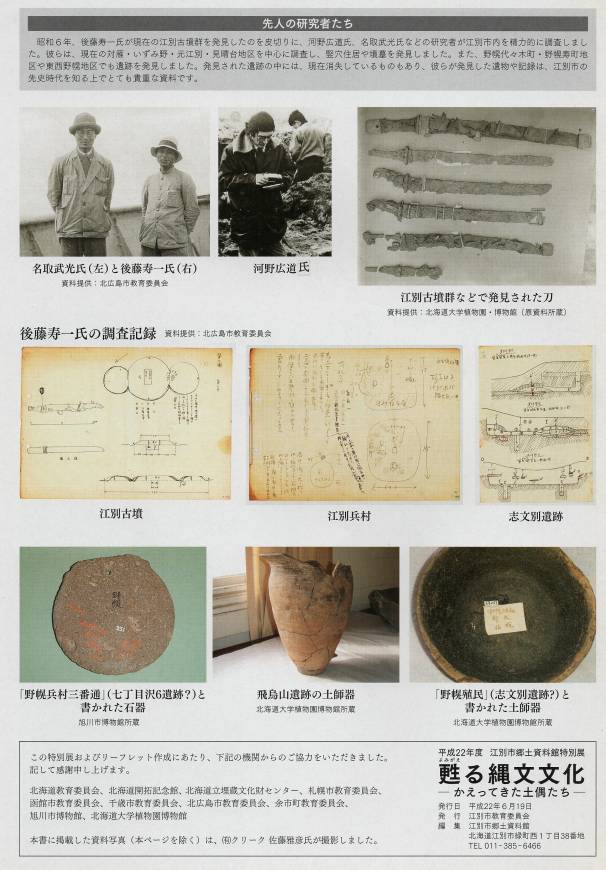 先人の研究者たち
昭和６年、後藤寿一氏が現在の江別古墳群を発見したのを皮切りに、河野広道氏、名取武光氏などの研究者が江別市内を精力的に調査しまし
た。彼らは、現在の対雁・いずみ野・元江別・見晴台地区を中心に調査し、竪穴住居や墳墓を発見しました。また、野幌代々木町・野幌寿町地
区や東西野幌地区でも遺跡を発見しました。発見された遺跡の中には、現在消失しているものもあり、彼らが発見した遺物や記録は、江別市の
先史時代を知る上でとても貴重な資料です。
名取武光氏（左）と後藤寿一氏（右）
資料提供：北広島市教育委員会
河野広道氏
江別古墳群などで発見された刀
資料提供：北海道大学植物園・博物館（原資料所蔵）
後藤寿一氏の調査記録 資料提供：北広島市教育委員会
江別古墳
江別兵村
志文別遺跡
野幌
「野幌兵村三番通」（七丁目沢6遺跡？）と
書かれた石器
旭川市博物館所蔵
飛烏山遺跡の土師器
北海道大学植物園博物館所蔵
「野幌殖民」（志文別遺跡?）と
書かれた土師器
北海道大学植物園博物館所蔵
この特別展およびリーフレット作成にあたり、下記の機関からのご協力をいただきました。
記して感謝申し上げます。
北海道教育委員会、北海道開拓記念館、北海道立埋蔵文化財センター、札幌市教育委員会、
函館市教育委員会、千歳市教育委員会、北広島市教育委員会、余市町教育委員会、
旭川市博物館、北海道大学植物園博物館
本書に掲載した資料写真（本ページを除く）は、㈲クリーク 佐藤雅彦氏が撮影しました。
平成22年度 江別市郷土資料館特別展
よみがえ
甦る縄文文化
―かえってきた土偶たち―
発行日 平成22年６月19日
発 行 江別市教育委員会
編 集 江別市郷土資料館
北海道江別市緑町西１丁目38番地
TEL 011-385-6466